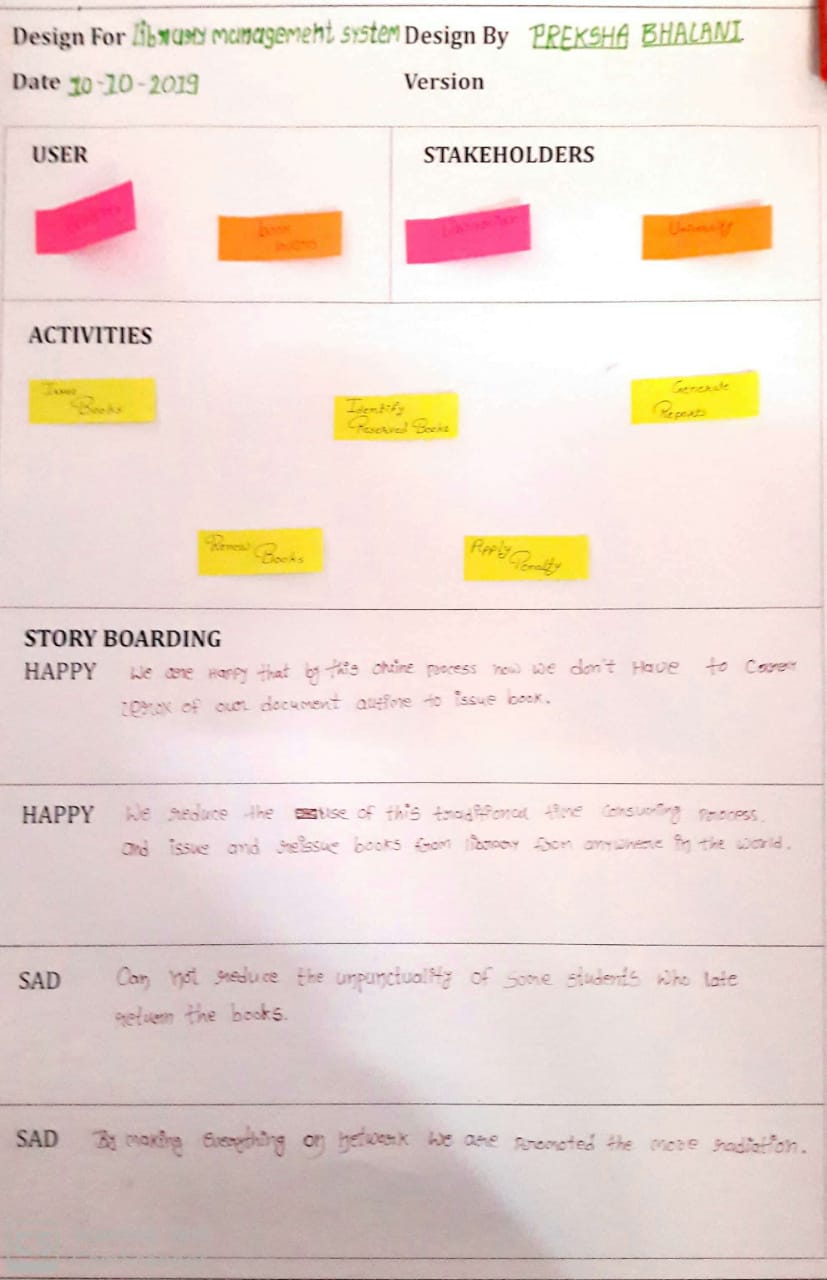 Design For Library management system Design By PREKSHA BHALANI
Date 10-10-2019 Version
USER STAKEHOLDERS
book Librarian University
ACTIVITIES
Issue
Books
Identify
Reserved Books
Generate
Reports
Renew Books
Apply
Penalty
STORY BOARDING
HAPPY We are Happy that by this online process now we don't Have to
xerox of our document to issue book.
HAPPY We reduce the use of this traditional time consuming process.
and issue and reissue books from library from anywhere in the world.
SAD Can not reduce the unpunctuality of some students who late
return the books.
SAD By making Everything on network we are promoted the more radiation.